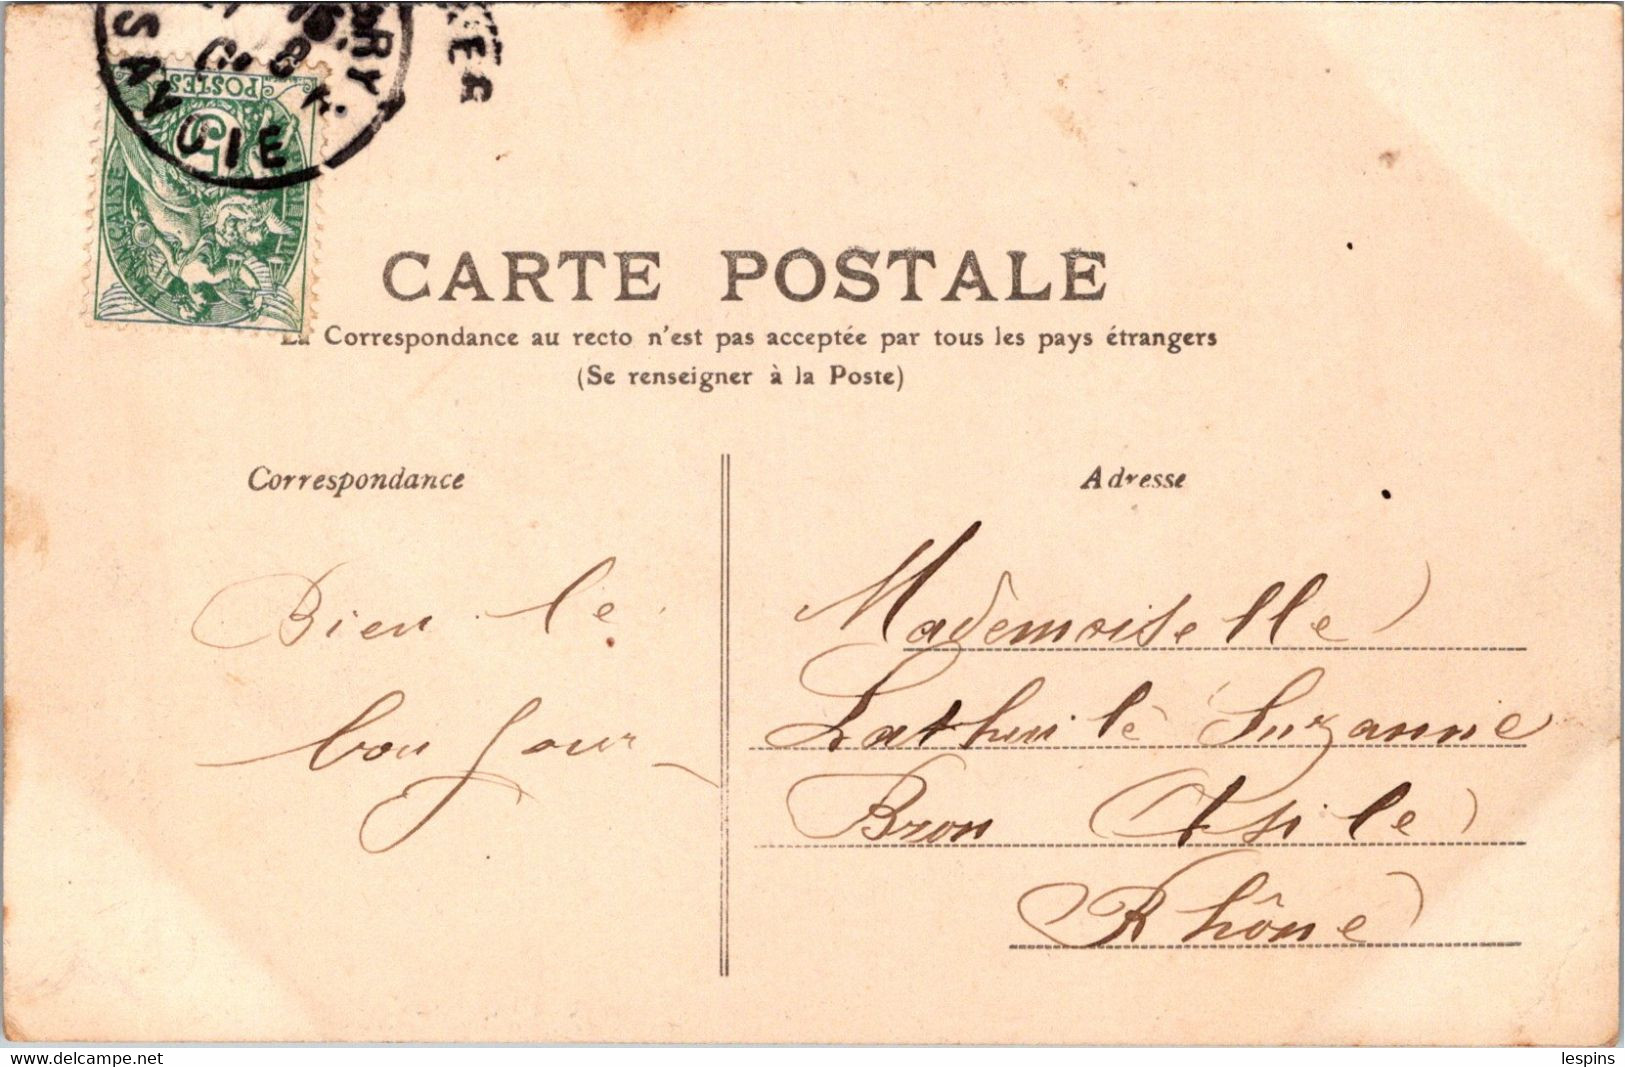 SAVOIE
POSTES
5
CARTE POSTALE
La Correspondance au recto n'est pas acceptée par tous les pays étrangers
(Se renseigner à la Poste)
Correspondance
Bien le
bon jour
Adresse
Mademoiselle
Lathuile Suzanne
Bron Asile
Rhône
www.delcampe.net
lespins